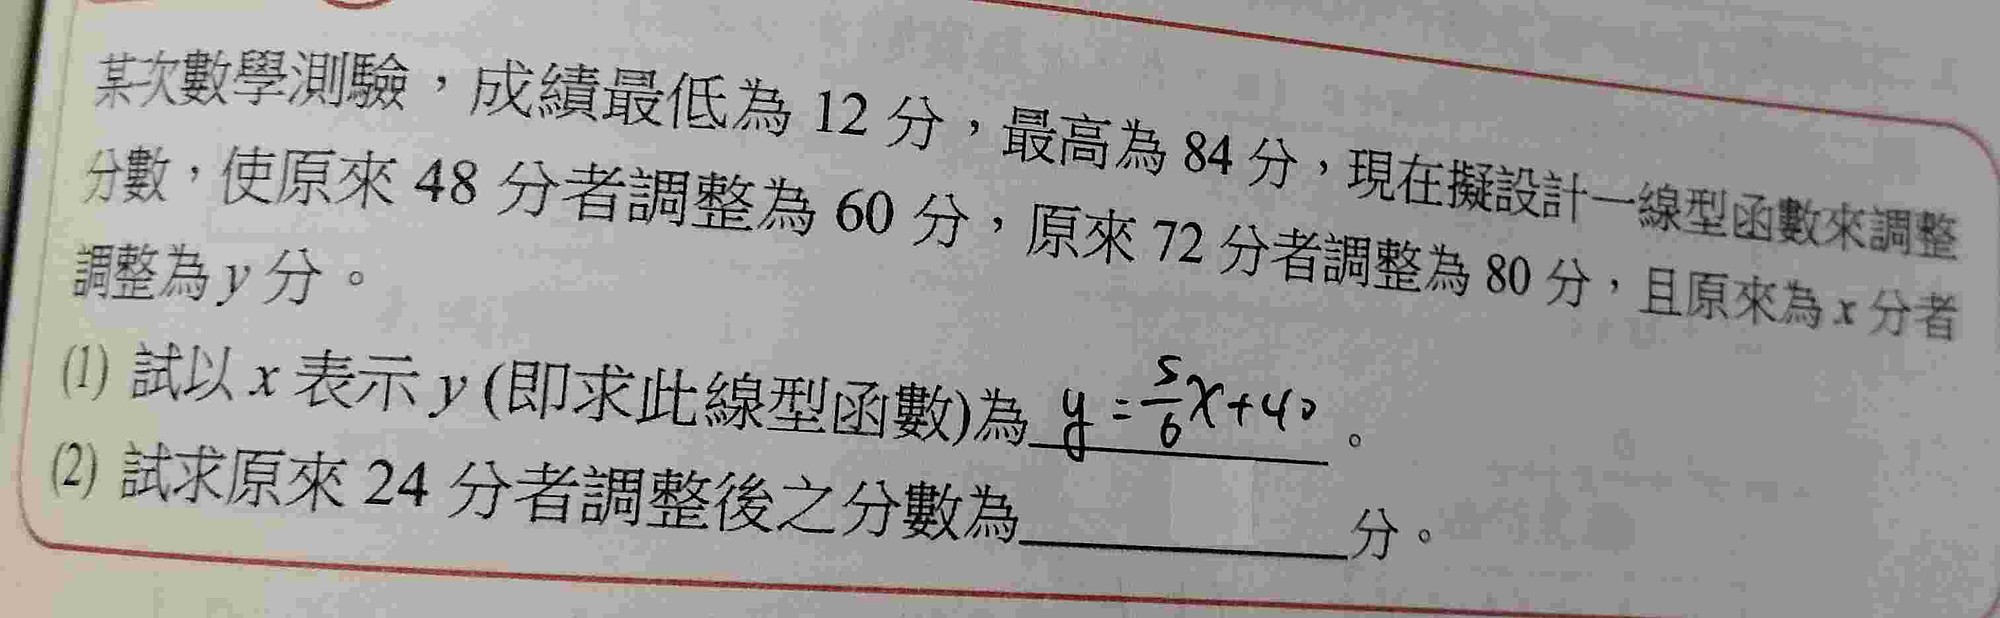 某次數學測驗，成績最低為 12 分，最高為 84 分，現在擬設計一線型函數來調整
分數，使原來 48 分者調整為 60 分，原來 72 分者調整為 80 分，且原來為 x 分者
調整為 y 分。
(1) 試以 x 表示 y (即求此線型函數)為 y = 5/6 x + 40 。
(2) 試求原來 24 分者調整後之分數為__________分。